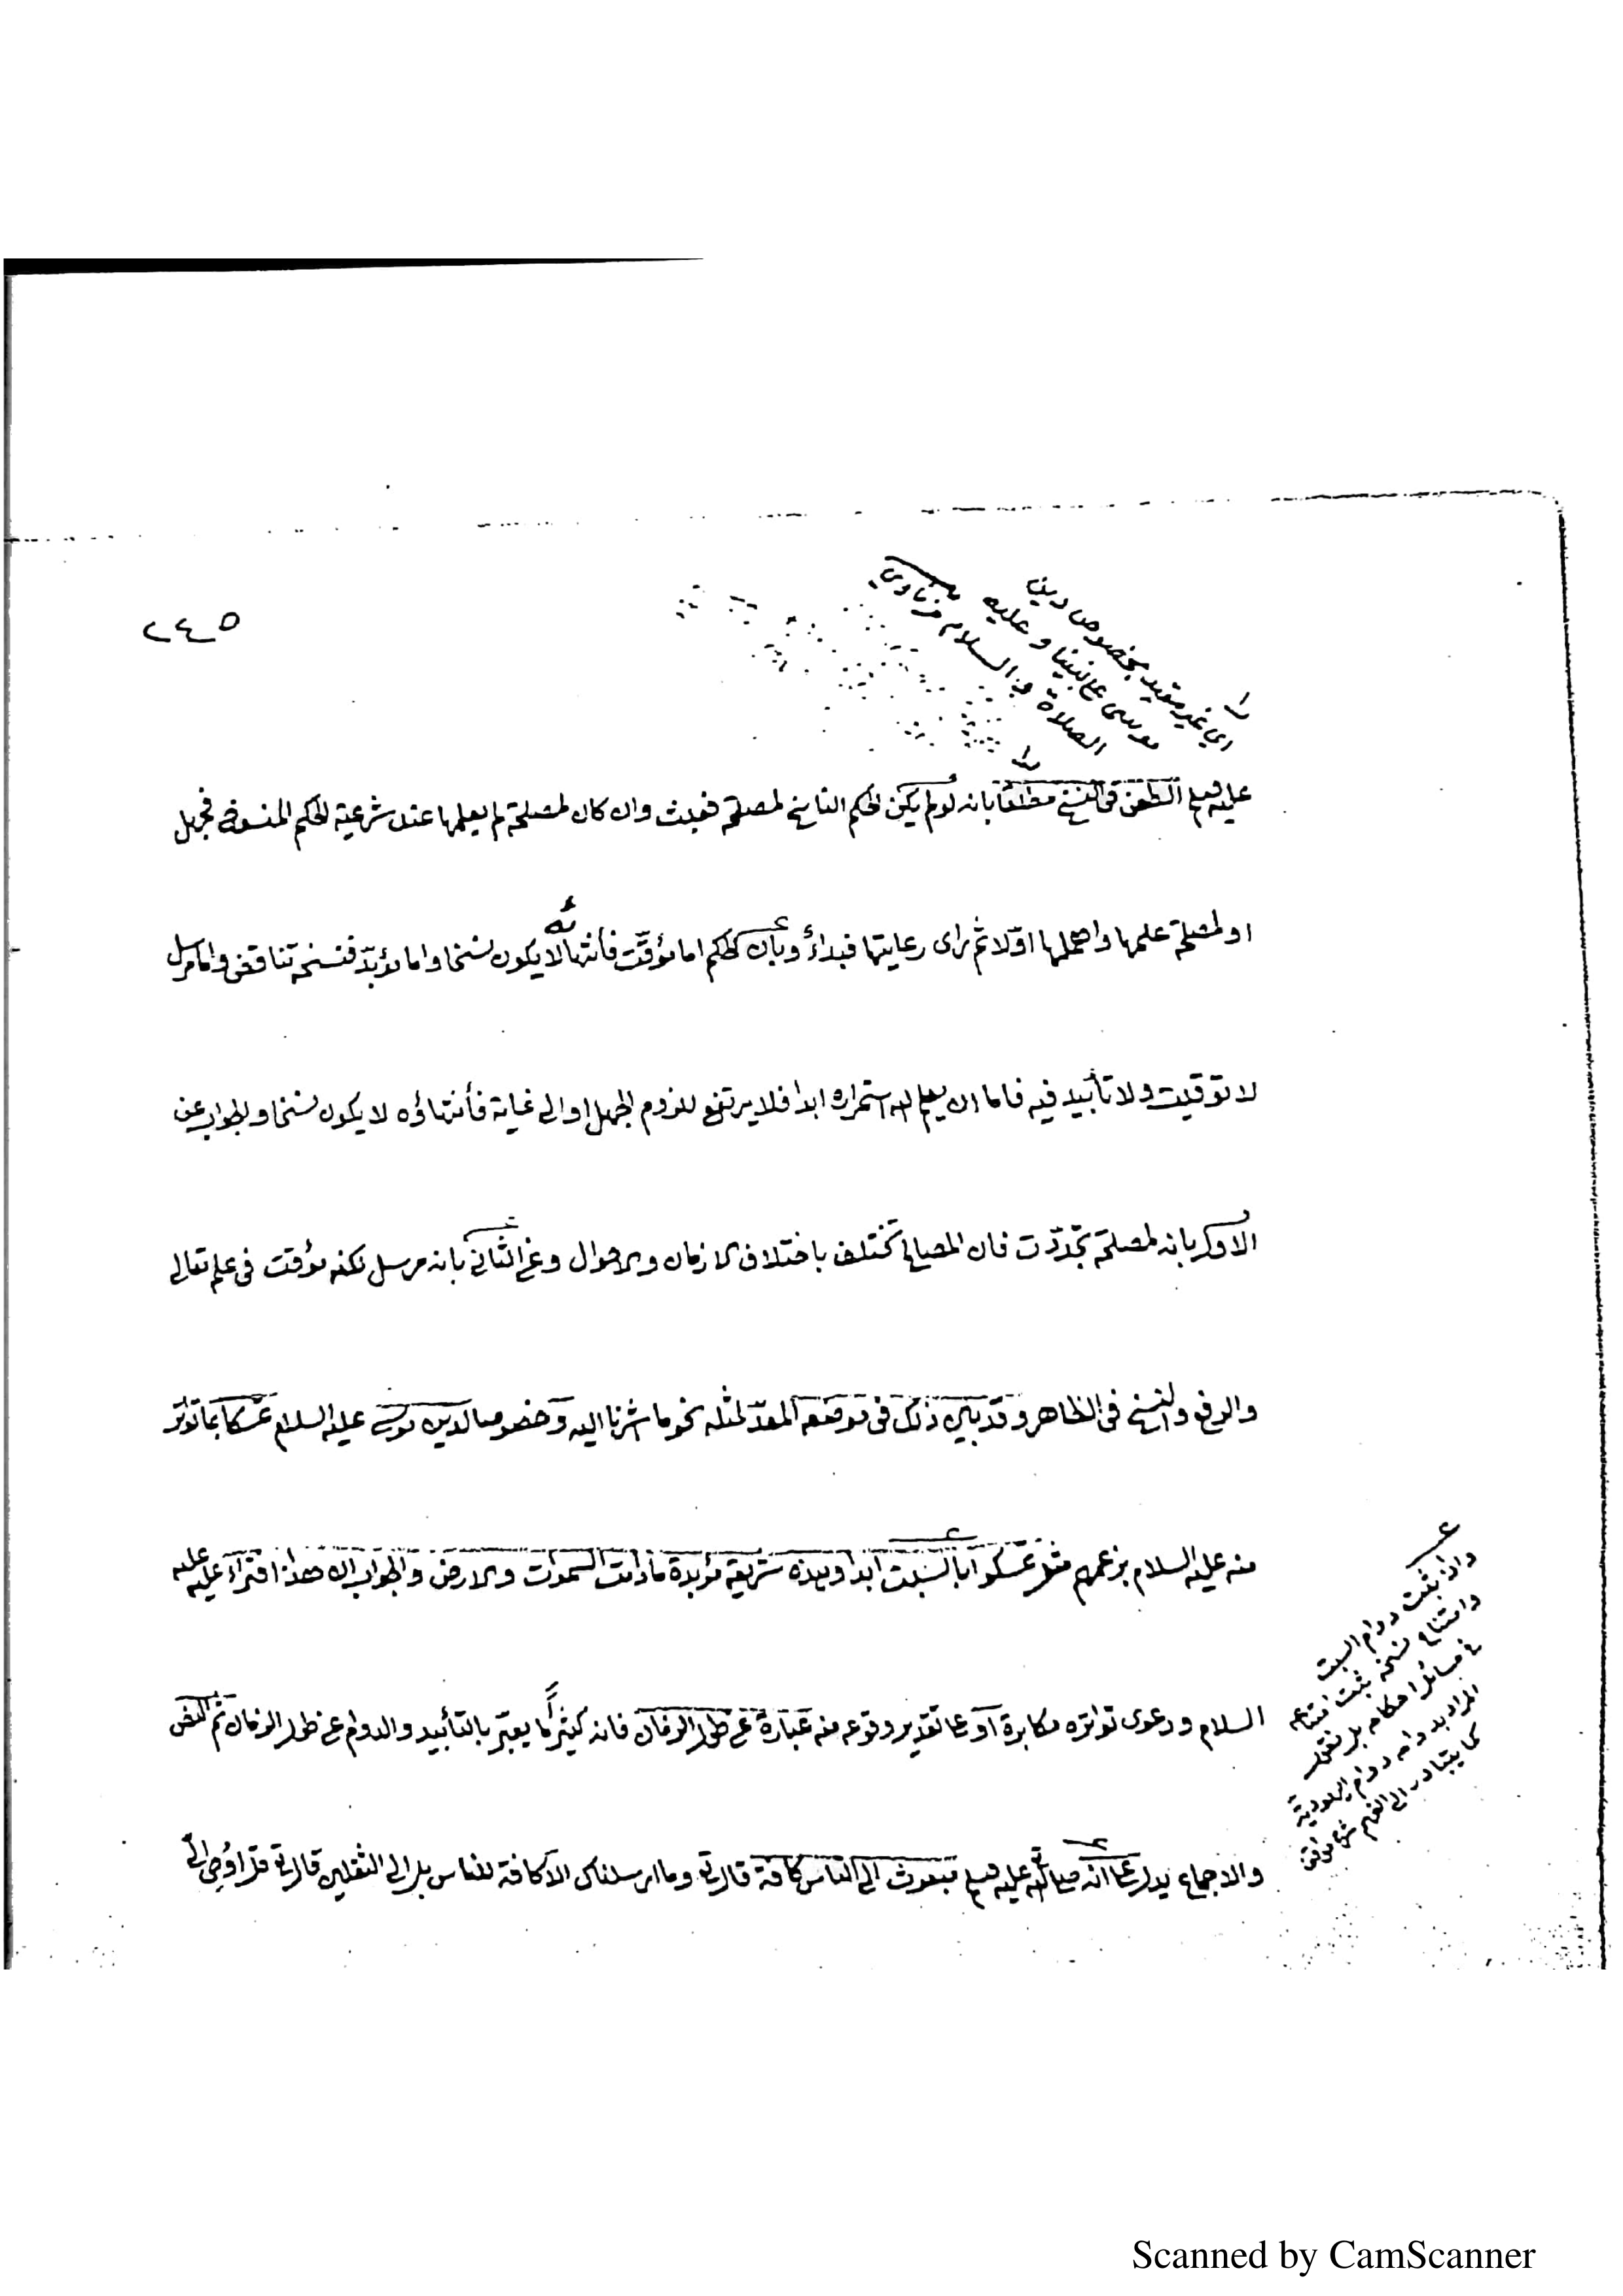 ٢٤٥
اي غير مقيد بخصوص دين
موسى ع نبينا وعليه
الصلاة والسلام
عليه وسلم الطعن فى النسخ مطلقا بانه لو لم يكن الحكم الناسخ لمصلحة فعبث وان كان لمصلحة لم يعلمها عند شرعية الحكم المنسوخ فجهل
او لمصلحة علمها واهملها اوّلا ثم راى رعايتها فبداءٌ وبأن الحكم اما مؤقّت فأنتهائه لا يكون نسخا واما مؤبّد فنسخه تناقض واما مرسل
لا توقيت ولا تأبيد فيه فاما ان يعلم الله استمراره ابدا فلا يرتفع للزوم الجهل او الى غاية فأنتهاؤه لا يكون نسخا والجواب عن
الاول بانه لمصلحة تجدّدت فان المصالح تختلف باختلاف الازمان والاحوال وعن الثاني بانه مرسل لكنه مؤقت فى علمه تعالى
والرفع والنسخ فى الظاهر وقد بيّن ذلك فى موضعه المعدّ لمثله نحو ما اشرنا اليه وخصوصا لدين موسى عليه السلام تمسّكا بما تواتر
منه عليه السلام بزعمهم مثل تمسّكوا بالسبت ابدا وهذه شريعة مؤبدة مادامت السموات والارض والجواب ان هذا افتراء عليه عليه
السلام ودعوى تواتره مكابرة او على تقدير وقوعه منه عبارة عن طول الزمان فانه كثيرًا ما يعبّر بالتأبيد والدوام عن طول الزمان ثم النص
والاجماع يدل على انه صلى الله تع عليه وسلم مبعوث الى الناس كافة قال تع وما ارسلناك الا كافة للناس بل الى الثقلين قال تع قل اُوحِيَ الَيّ
واذ ثبت دوام السبت
وامتناع نسخه يثبت امتناعه
في سائر احكامه بل نقول
المراد بدوامه دوام اليهودية
كما يتبادر الى الفهم شرح مواقف
Scanned by CamScanner